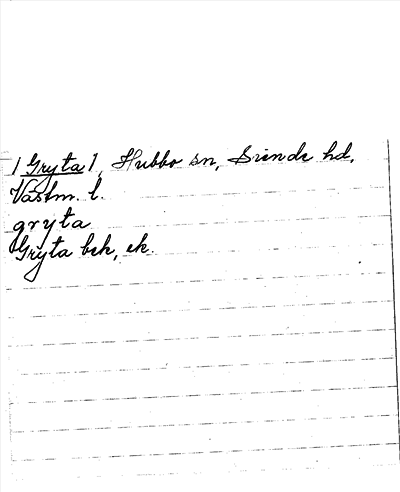 [Gryta], Hubbo sn, Siende hd,
Västm. l.
gryta
Gryta bck, ek.